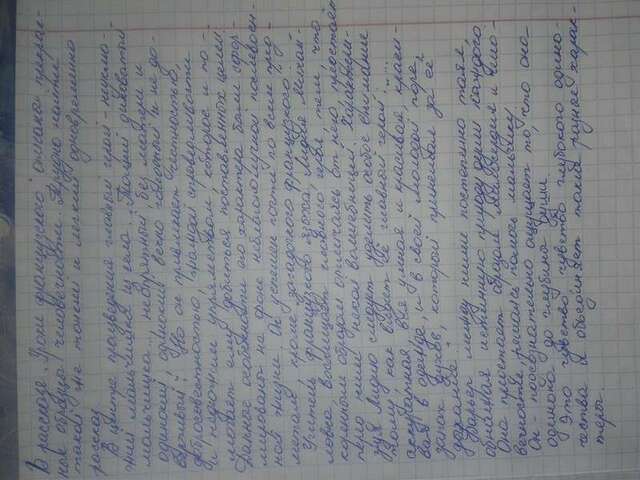 В рассказе „Уроки французского" описаны прекрас-
ные образцы человечности. Трудно найти
такой же тонкий и легкий одновременно
рассказ.
В центре произведения главный герой -
мальчишка из села. „Тощий диковатый
мальчишка..., неопрятный без матери и
одинокий, одинокий вечно голодный и не до-
верчивый". Но он привлекает честностью,
добросовестностью, жаждой справедливости
и недюжим упрямством, которое и по-
могает ему добиться поставленных целей.
Данные особенности его характера были сфор-
мированы на фоне неблагополучной послевоен-
ной жизни. Он успешен почти по всем пред-
метам, кроме „загадочного французского".
Учитель французского языка, Лидия Михай-
ловна, восхищает главного героя, тем, что
коренным образом отличаясь от него, предстаёт
перед ним некой волшебницей. Характери-
зуя Лидию следует уделить особое внимание
тому, как видит её главный герой: „...
аккуратная, вся умная и красивая, краси-
вая в одежде, и в своей молодой поре,
запах духов, который принимал за её
дыхание".
Барьер между ними постепенно таял,
обнажая истинную природу души каждого.
Она предстает образом милосердия и чело-
вечности, решаясь помочь мальчику.
Он - подсознательно ощущает то, что она
одинока до глубины души.
Это чувство, чувство глубокого одино-
чества и объединяет такие разные харак-
теры.